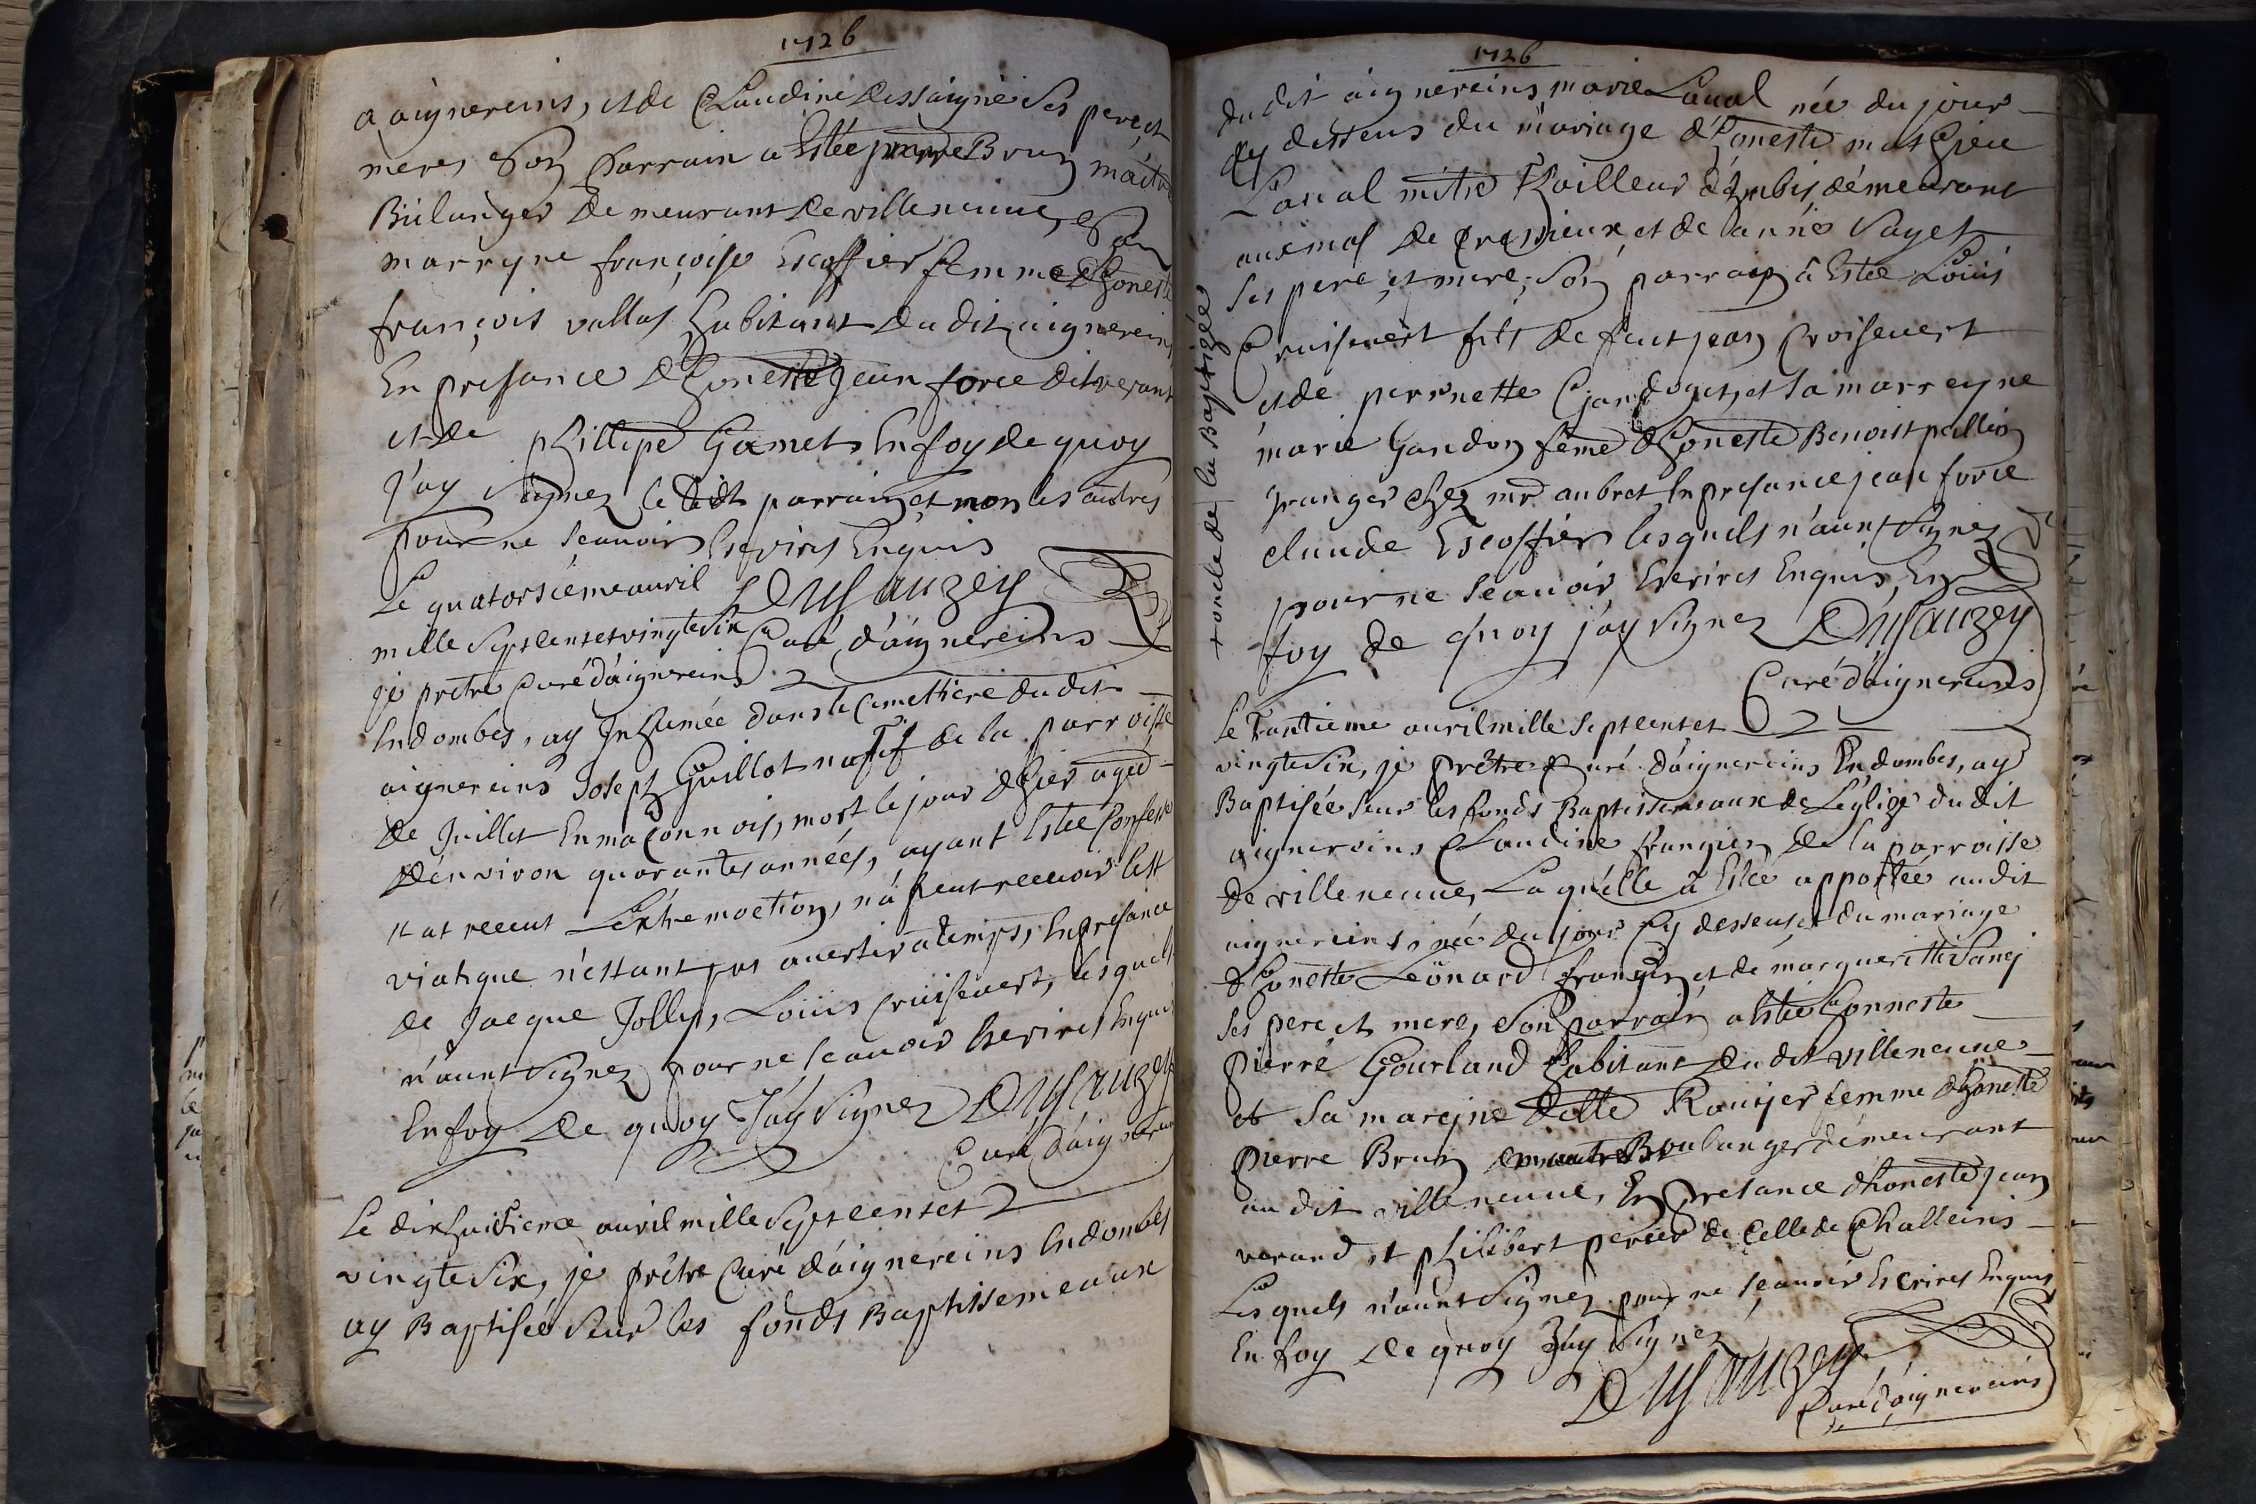 1726
a aignereins, et de Claudine dessaigne ses pere, et
meres son Parrain a Estée pierre Brun maitre
Bulanger demeurant de villeneuve, Sa
marryne françoise Escoffier femme d'honeste
françois vallas habitant du dit aignereins
En presance d'honeste Jean force dit verant
et de phillipe Gamet Enfoy de quoy
J'ay Signez le dit parrain et non les autres
pour ne Scauoir Escrires Enquis
Dusauzey
Curé d'aignereins
Le quatorsiemeauril
mille Septcentetvingtesix
je prêtre Curé d'aignereins
Endombes, ay Inhumée dans le Cemettiere du dit
aignereins Joseph Guillot natif de la parroisse
de Juillet En maconnois, mort le jour d'hier aged
d'environ quarantes années, ayant Estée Confessé
et at receut L'extremoction, n'a peut receuoir lest
viatique n'estant pas auertir a temps, En presance
de Jacque Jolly, Loüis Cruisevert, lesquels
n'aunt Signez pour ne Scauoir Escrires Enquis
En foy de quoy J'ay Signez Dusauzey
Curé d'aignereins
Le dixhuitieme auril mille Septcentet
vingtesix, je prêtre Curé d'aignereins Endombes
ay Baptisée Seur les fonds Baptissemeaux
1726
du dit aignereins marie Laual née du jour
cy desseus du mariage d'honeste mathieu
Laual mitre Tailleur d'habis, démeurant
aux mas de Cressieux, et de Anne Sayet
ses pere, et mere; son parrain â Estée Loüis
Cruisevert fils de feut jean Croisevert
et de pernette et sa marreyne
marie Gandon féme d'honeste Benoist pallin
granger chez mr aubret, En presance jean force
claude Escoffier lesquels n'aunt Signez
pour ne Scauoir Escrires Enquis, En
foy de quoy j'ay Signez Dusauzey
Curé d'aignereins
+ oncle de la Baptizée
Le trantieme auril mille Septcentet
vingtesix, je prêtre Curé d'aignereins Endombes, ay
Baptisée Seur les fonds Baptissemeaux de L'eglize du dit
aignereins Claudine françon de la parroisse
de villeneuue, Laquélle â Estée apportée audit
aignereins, née du jour cy desseus, et du mariage
d'honeste Léonard françon, et de márgueritte Sanej
ses pere, et mere, Son parrain a Estée honneste
pierré Gourland habitant du dit villeneuue
et sa marejne Rouijer femme d'honeste
pierre Brun Boulanger démeurant
au dit villeneuue, En presance d'honeste jean
verand et philibert perier de Celle de Challeins
Lesquels n'aunt Signez pour ne Scauoir Escrires Enquis
En foy de quoy J'ay Signez
Dusauzey
Curé d'aignereins